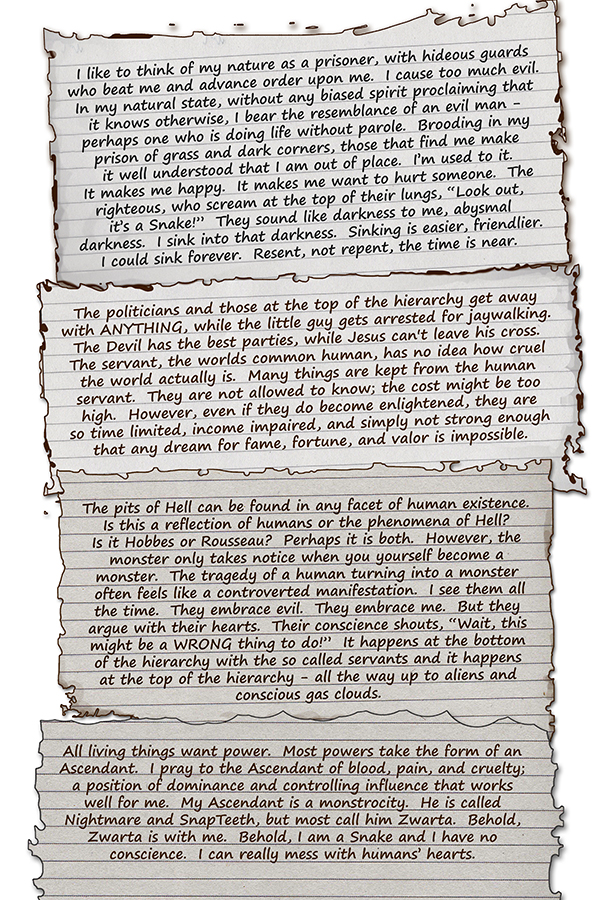 I like to think of my nature as a prisoner, with hideous guards
who beat me and advance order upon me. I cause too much evil.
In my natural state, without any biased spirit proclaiming that
it knows otherwise, I bear the resemblance of an evil man -
perhaps one who is doing life without parole. Brooding in my
prison of grass and dark corners, those that find me make
it well understood that I am out of place. I'm used to it.
It makes me happy. It makes me want to hurt someone. The
righteous, who scream at the top of their lungs, "Look out,
it's a Snake!" They sound like darkness to me, abysmal
darkness. I sink into that darkness. Sinking is easier, friendlier.
I could sink forever. Resent, not repent, the time is near.
The politicians and those at the top of the hierarchy get away
with ANYTHING, while the little guy gets arrested for jaywalking.
The Devil has the best parties, while Jesus can't leave his cross.
The servant, the worlds common human, has no idea how cruel
the world actually is. Many things are kept from the human
servant. They are not allowed to know; the cost might be too
high. However, even if they do become enlightened, they are
so time limited, income impaired, and simply not strong enough
that any dream for fame, fortune, and valor is impossible.
The pits of Hell can be found in any facet of human existence.
Is this a reflection of humans or the phenomena of Hell?
Is it Hobbes or Rousseau? Perhaps it is both. However, the
monster only takes notice when you yourself become a
monster. The tragedy of a human turning into a monster
often feels like a controverted manifestation. I see them all
the time. They embrace evil. They embrace me. But they
argue with their hearts. Their conscience shouts, "Wait, this
might be a WRONG thing to do!" It happens at the bottom
of the hierarchy with the so called servants and it happens
at the top of the hierarchy - all the way up to aliens and
conscious gas clouds.
All living things want power. Most powers take the form of an
Ascendant. I pray to the Ascendant of blood, pain, and cruelty;
a position of dominance and controlling influence that works
well for me. My Ascendant is a monstrocity. He is called
Nightmare and SnapTeeth, but most call him Zwarta. Behold,
Zwarta is with me. Behold, I am a Snake and I have no
conscience. I can really mess with humans' hearts.